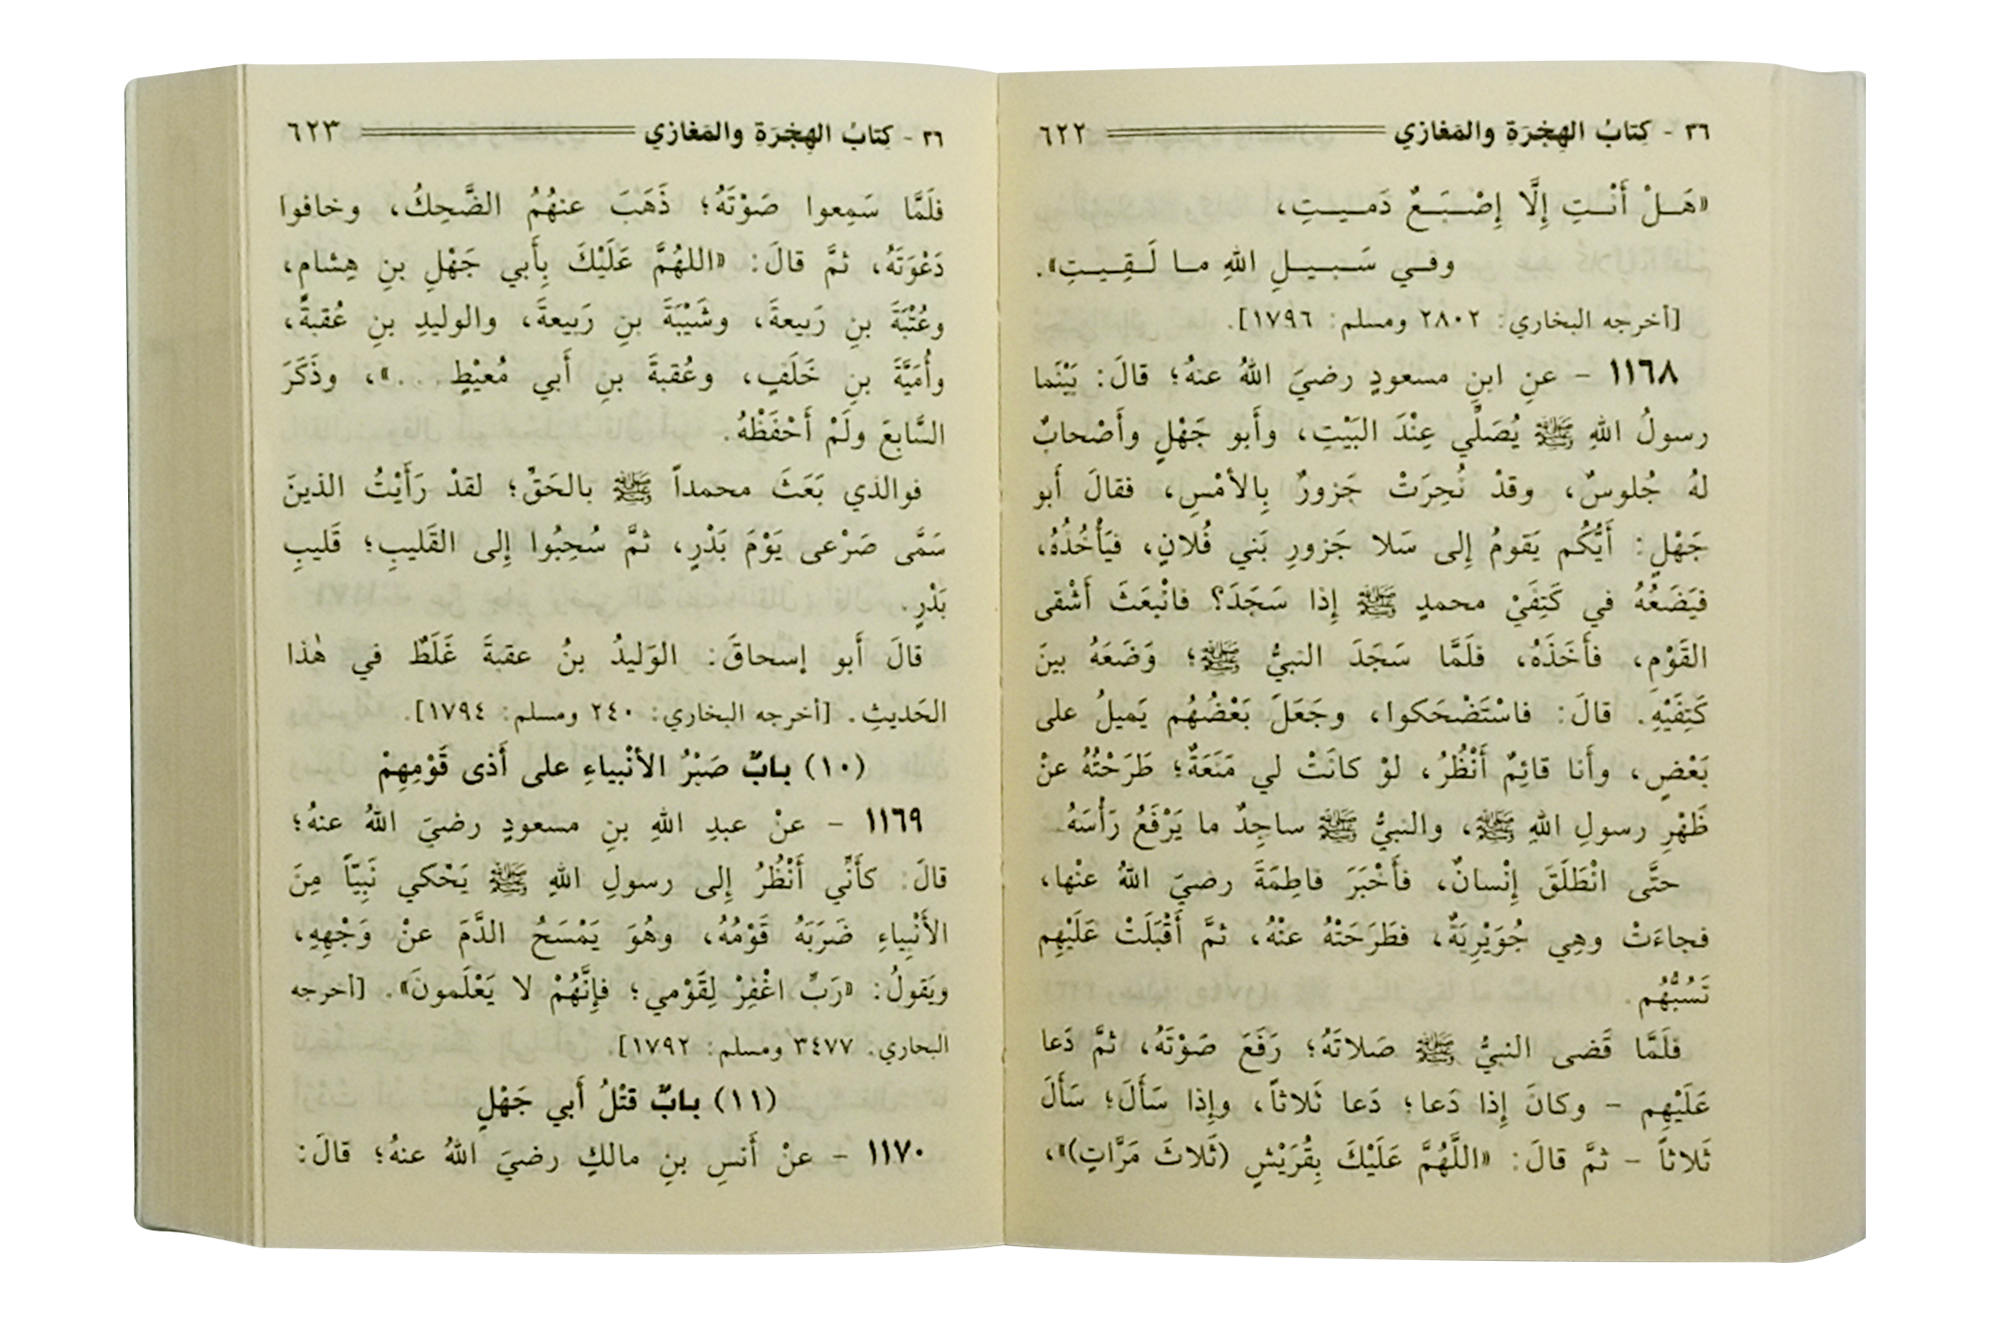 ٣٦ - كِتابُ الهِجْرَةِ والمَغازي ٦٢٢
«هَـلْ أَنْـتِ إِلَّا إِصْـبَـعٌ دَمـيـتِ،
وفـي سَـبـيـلِ اللهِ مـا لَـقِـيـتِ».
[أخرجه البخاري: ٢٨٠٢ ومسلم: ١٧٩٦].
١١٦٨ - عنِ ابنِ مسعودٍ رضيَ اللهُ عنهُ؛ قالَ: بَيْنَما
رسولُ اللهِ ﷺ يُصَلِّي عِنْدَ البَيْتِ، وأَبو جَهْلٍ وأَصْحابٌ
لهُ جُلوسٌ، وقدْ نُحِرَتْ جَزورٌ بِالأمْسِ، فقالَ أَبو
جَهْلٍ: أَيُّكُم يَقومُ إِلى سَلا جَزورِ بَني فُلانٍ، فيَأْخُذُهُ،
فيَضَعُهُ في كَتِفَيْ محمدٍ ﷺ إِذا سَجَدَ؟ فانْبعَثَ أَشْقى
القَوْمِ، فأَخَذَهُ، فلَمَّا سَجَدَ النبيُّ ﷺ؛ وَضَعَهُ بينَ
كَتِفَيْهِ. قالَ: فاسْتَضْحَكوا، وجَعَلَ بَعْضُهُم يَميلُ على
بَعْضٍ، وأَنا قائِمٌ أَنْظُرُ، لوْ كانَتْ لي مَنَعَةٌ؛ طَرَحْتُهُ عنْ
ظَهْرِ رسولِ اللهِ ﷺ، والنبيُّ ﷺ ساجِدٌ ما يَرْفَعُ رَأْسَهُ
حتَّى انْطَلَقَ إِنْسانٌ، فأَخْبَرَ فاطِمَةَ رضيَ اللهُ عنْها،
فجاءَتْ وهِي جُوَيْرِيَةٌ، فطَرَحَتْهُ عنْهُ، ثمَّ أَقْبَلَتْ عَلَيْهِم
تَسُبُّهُم.
فلَمَّا قَضى النبيُّ ﷺ صَلاتَهُ؛ رَفَعَ صَوْتَهُ، ثمَّ دَعا
عَلَيْهِم - وكانَ إِذا دَعا؛ دَعا ثَلاثاً، وإِذا سَأَلَ؛ سَأَلَ
ثَلاثاً - ثمَّ قالَ: «اللَّهُمَّ عَلَيْكَ بِقُرَيْشٍ (ثَلاثَ مَرَّاتٍ)»،
٣٦ - كِتابُ الهِجْرَةِ والمَغازي ٦٢٣
فلَمَّا سَمِعوا صَوْتَهُ؛ ذَهَبَ عنهُمُ الضَّحِكُ، وخافوا
دَعْوَتَهُ، ثمَّ قالَ: «اللهُمَّ عَلَيْكَ بِأَبي جَهْلِ بنِ هِشامٍ،
وعُتْبَةَ بنِ رَبيعةَ، وشَيْبَةَ بنِ رَبيعةَ، والوليدِ بنِ عُقبةَ،
وأُمَيَّةَ بنِ خَلَفٍ، وعُقبةَ بنِ أَبي مُعيْطٍ...»، وذَكَرَ
السَّابعَ ولَمْ أَحْفَظْهُ.
فوالذي بَعَثَ محمداً ﷺ بالحَقِّ؛ لقدْ رَأَيْتُ الذينَ
سَمَّى صَرْعى يَوْمَ بَدْرٍ، ثمَّ سُحِبُوا إِلى القَليبِ؛ قَليبِ
بَدْرٍ.
قالَ أَبو إسحاقَ: الوَليدُ بنُ عقبةَ غَلَطٌ في هٰذا
الحَديثِ. [أخرجه البخاري: ٢٤٠ ومسلم: ١٧٩٤].
(١٠) بابٌ صَبْرُ الأنْبياءِ على أَذى قَوْمِهِمْ
١١٦٩ - عنْ عبدِ اللهِ بنِ مسعودٍ رضيَ اللهُ عنهُ؛
قالَ: كأَنِّي أَنْظُرُ إِلى رسولِ اللهِ ﷺ يَحْكي نَبِيّاً مِنَ
الأَنْبِياءِ ضَرَبَهُ قَوْمُهُ، وهُوَ يَمْسَحُ الدَّمَ عنْ وَجْهِهِ،
ويَقولُ: «رَبِّ اغْفِرْ لِقَوْمي؛ فإِنَّهُمْ لا يَعْلَمونَ». [أخرجه
البخاري: ٣٤٧٧ ومسلم: ١٧٩٢].
(١١) بابٌ قتْلُ أَبي جَهْلٍ
١١٧٠ - عنْ أَنسِ بنِ مالكٍ رضيَ اللهُ عنهُ؛ قالَ: